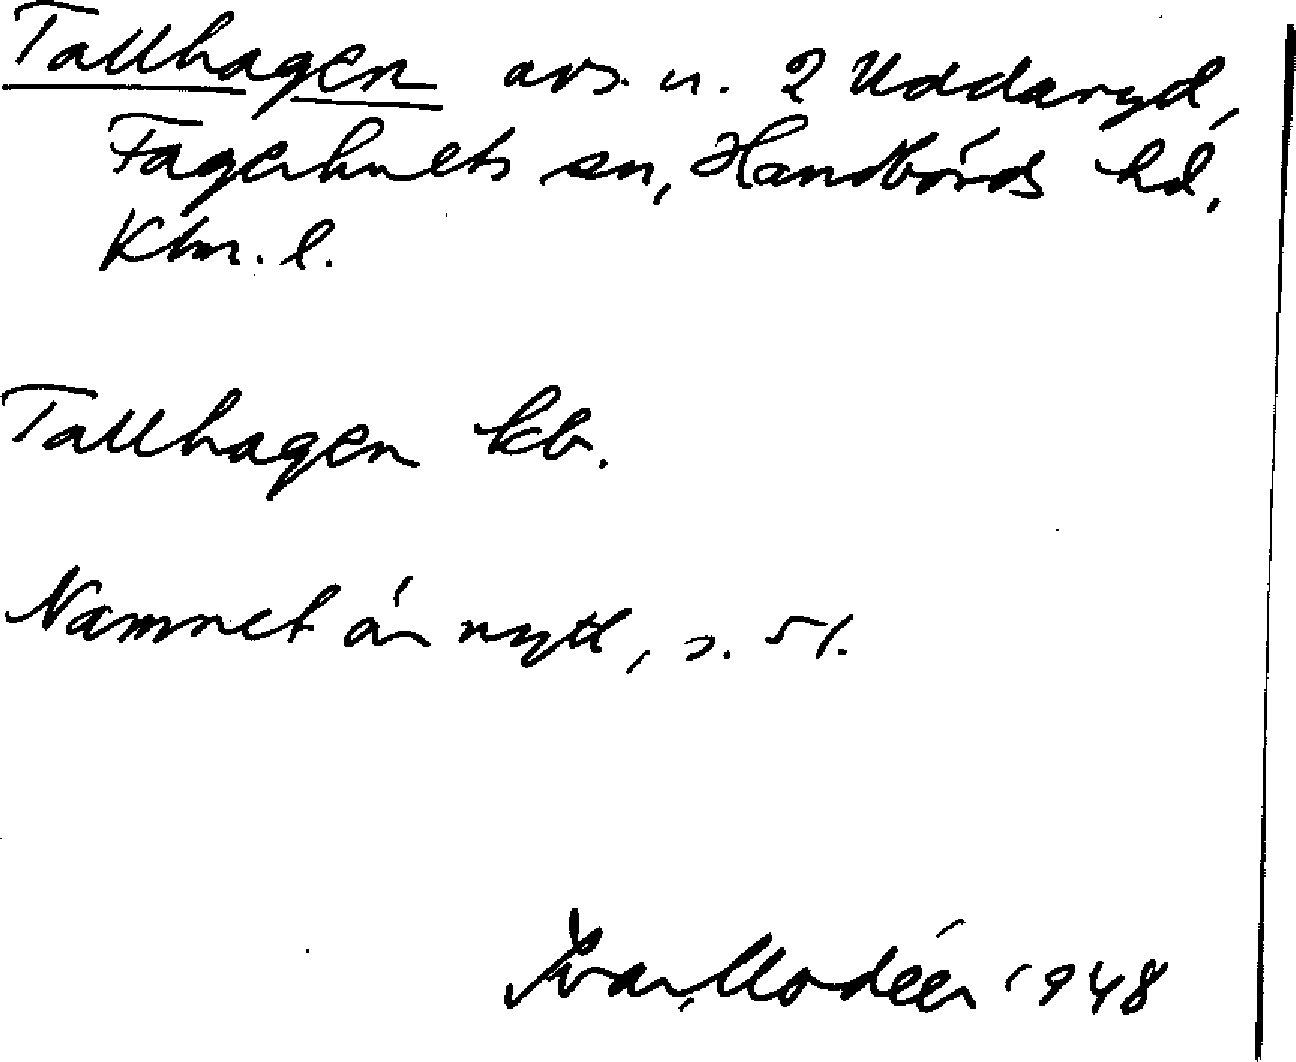 Tallhagen avs. u. 2 Uddaryd,
Fagerhults sn, Handbörds hd,
Klm. l.
Tallhagen kb.
Namnet är nytt, s. 51.
Ivar Modéer 1948